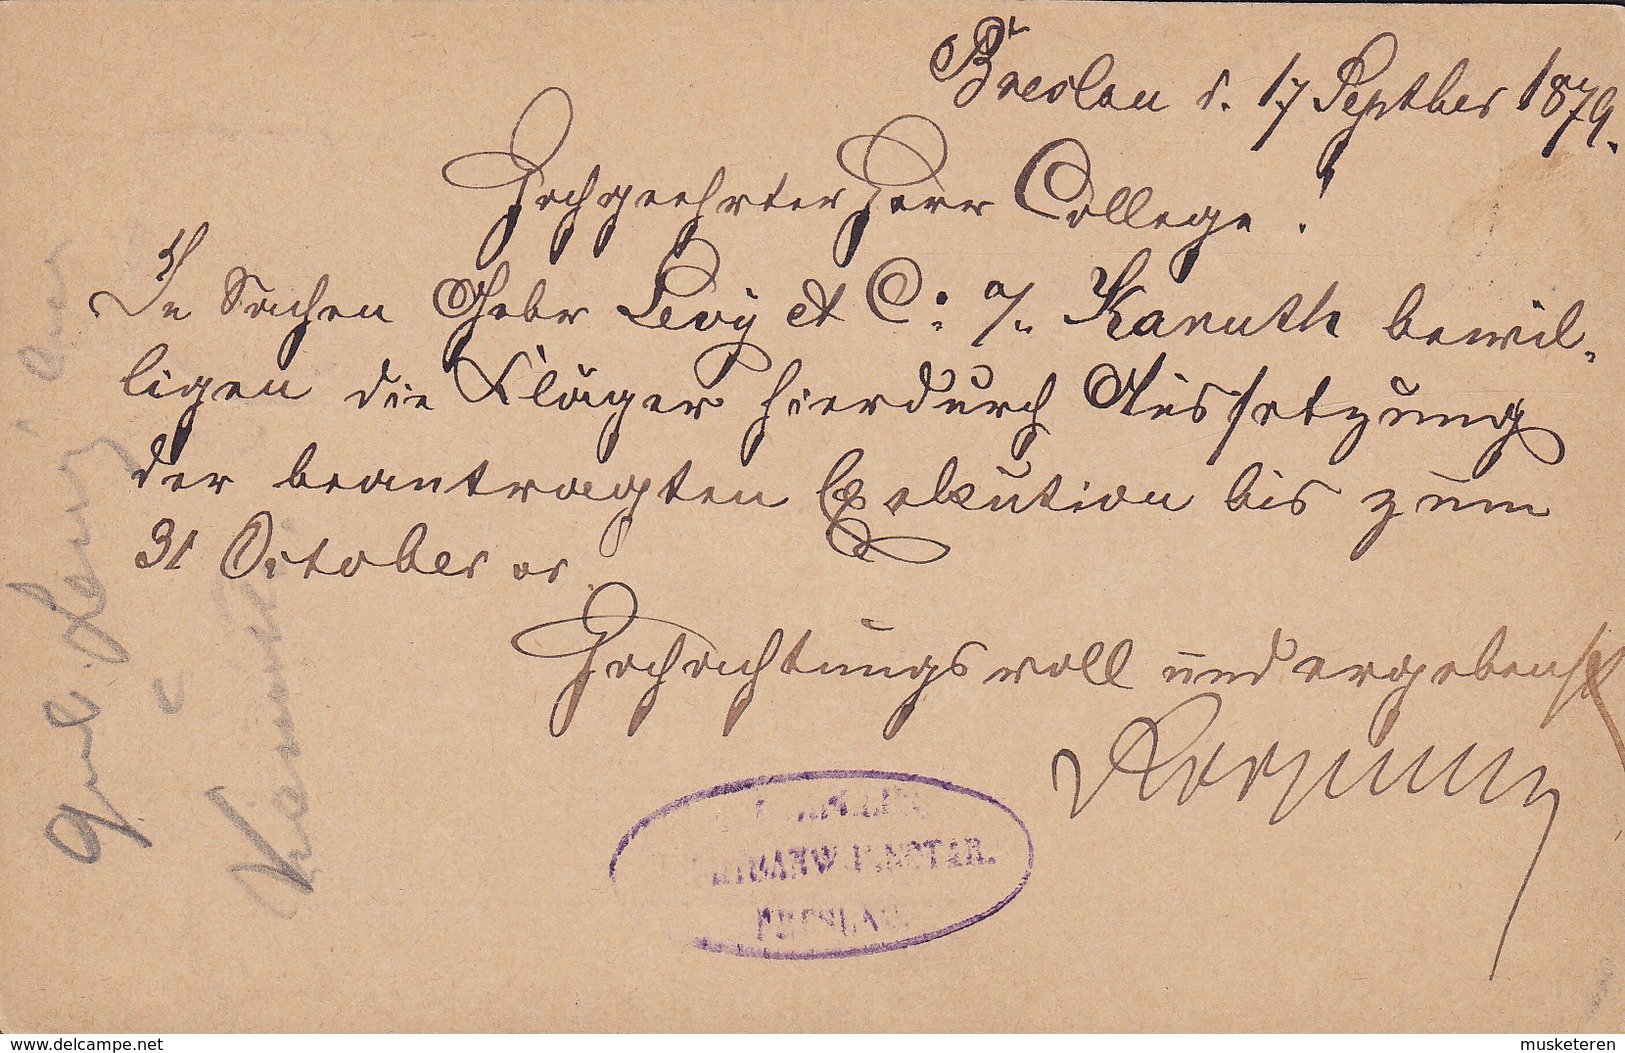 Breslau d. 17 Septber 1879.
Hochgeehrter Herr College!
In Sachen Gebr Levy et C: a/. Kanuth bewil-
ligen die Kläger hierdurch Aussetzung
der beantragten Exekution bis zum
31 October cr.
Hochachtungsvoll und ergebenst
BRESLAU.
Levy
www.delcampe.net
musketeren